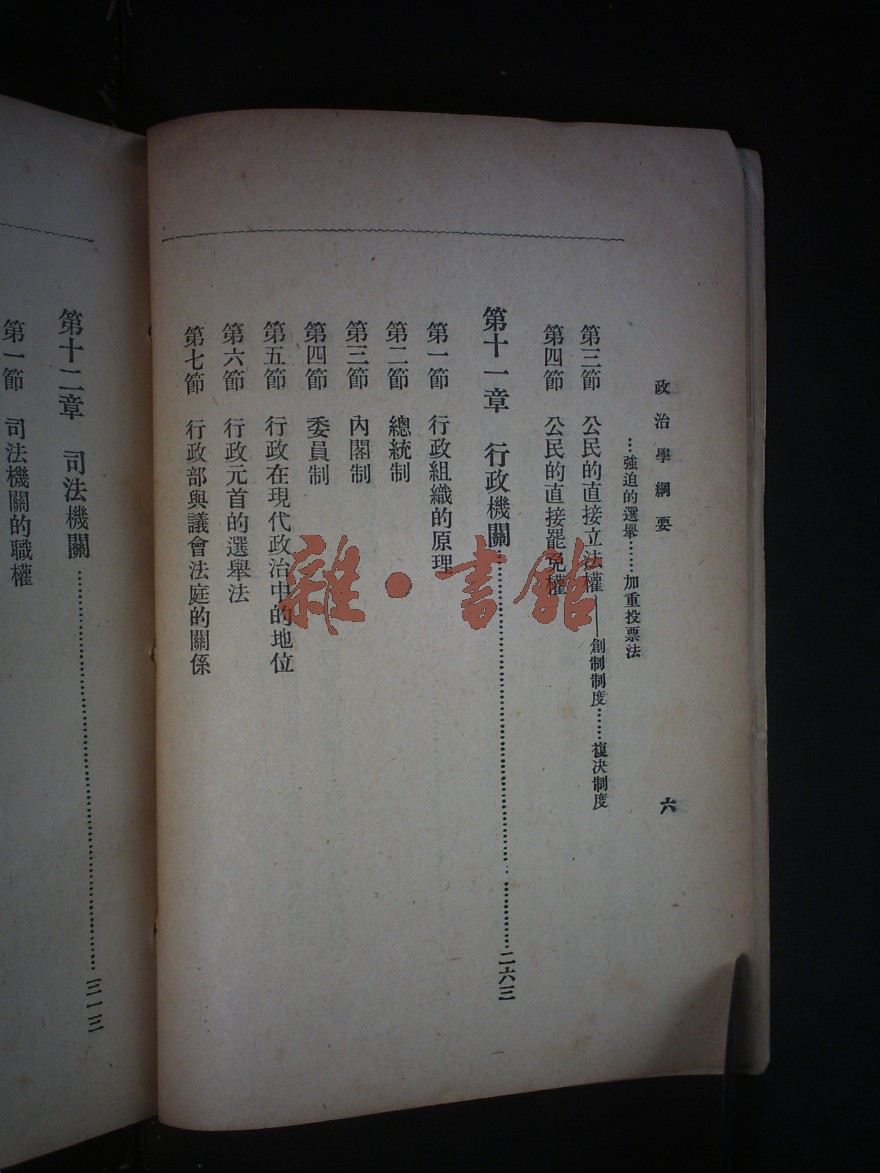 政治學綱要
六
…强迫的選舉……加重投票法
第三節 公民的直接立法權——創制制度……複决制度
第四節 公民的直接罷免權
第十一章 行政機關……二六三
第一節 行政組織的原理
第二節 總統制
第三節 內閣制
第四節 委員制
第五節 行政在現代政治中的地位
第六節 行政元首的選舉法
第七節 行政部與議會法庭的關係
第十二章 司法機關……三一三
第一節 司法機關的職權
雜·書館